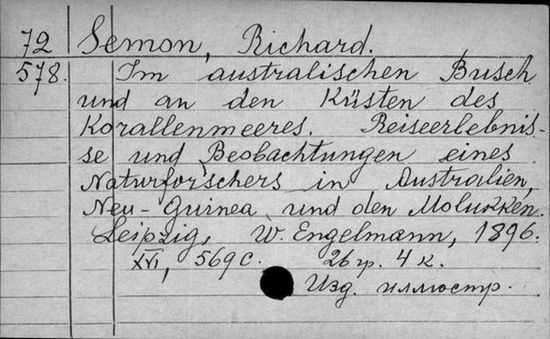 72 Semon, Richard.
578. Im australischen Busch
und an den Küsten des
Korallenmeeres. Reiseerlebnis-
se und Beobachtungen eines
Naturforschers in Australien,
Neu-Guinea und den Molukken.
Leipzig, W. Engelmann, 1896.
XVI, 569 с. 26 гр. 4 к.
Изд. иллюстр.